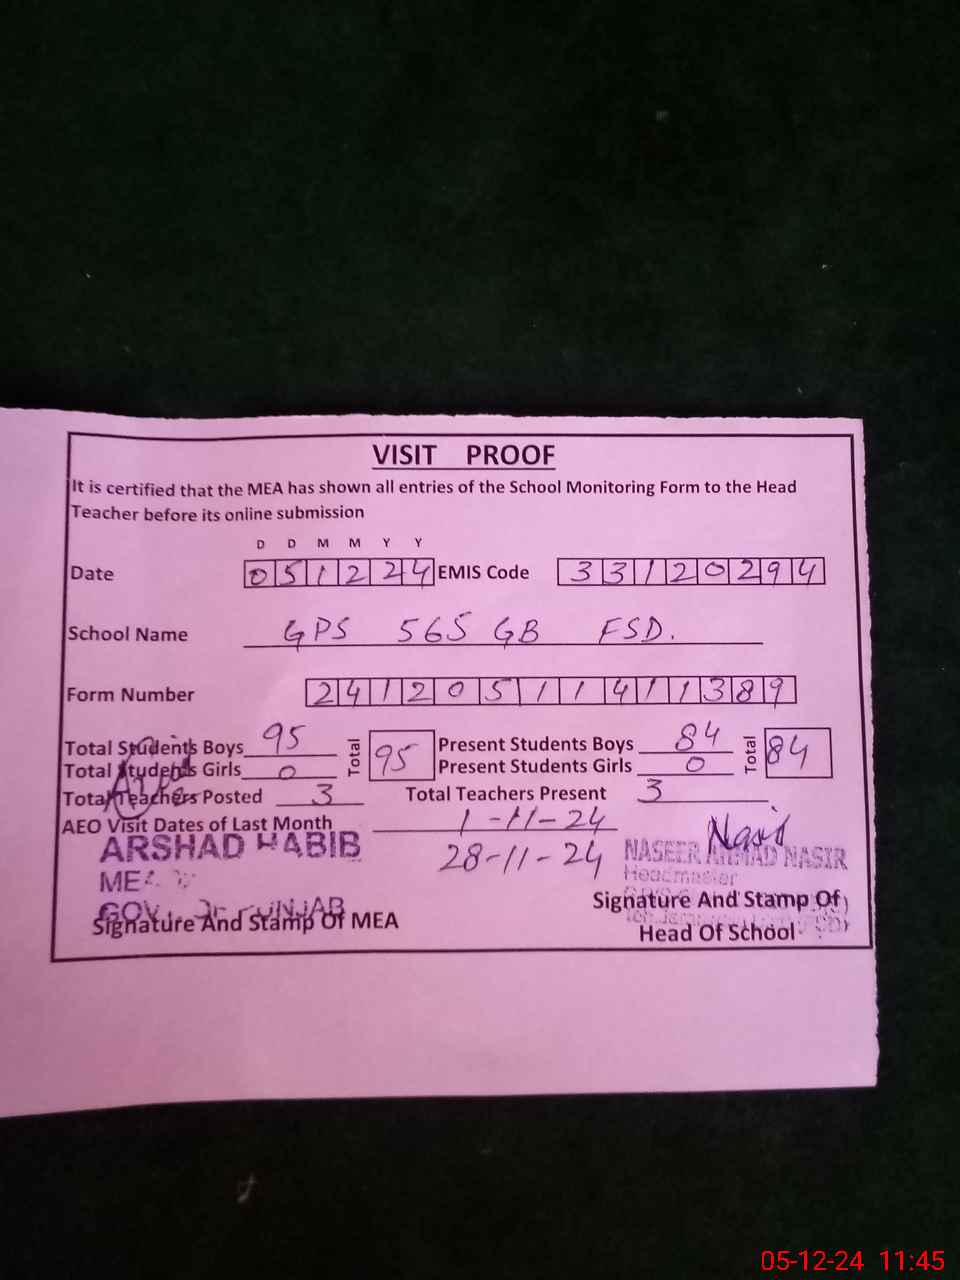 VISIT PROOF
It is certified that the MEA has shown all entries of the School Monitoring Form to the Head
Teacher before its online submission
D D M M Y Y
Date 051224 EMIS Code 33120294
School Name GPS 565 GB FSD.
Form Number 24120511411389
Total Students Boys 95 Total 95 Present Students Boys 84 Total 84
Total Students Girls 0 Present Students Girls 0
Total Teachers Posted 3 Total Teachers Present 3
AEO Visit Dates of Last Month 1-11-24
28-11-24
ARSHAD HABIB
MEA
GOV. OF PUNJAB
Signature And Stamp Of MEA
Nasir
NASEER AHMAD NASIR
Headmaster
Signature And Stamp Of
Head Of School
05-12-24 11:45